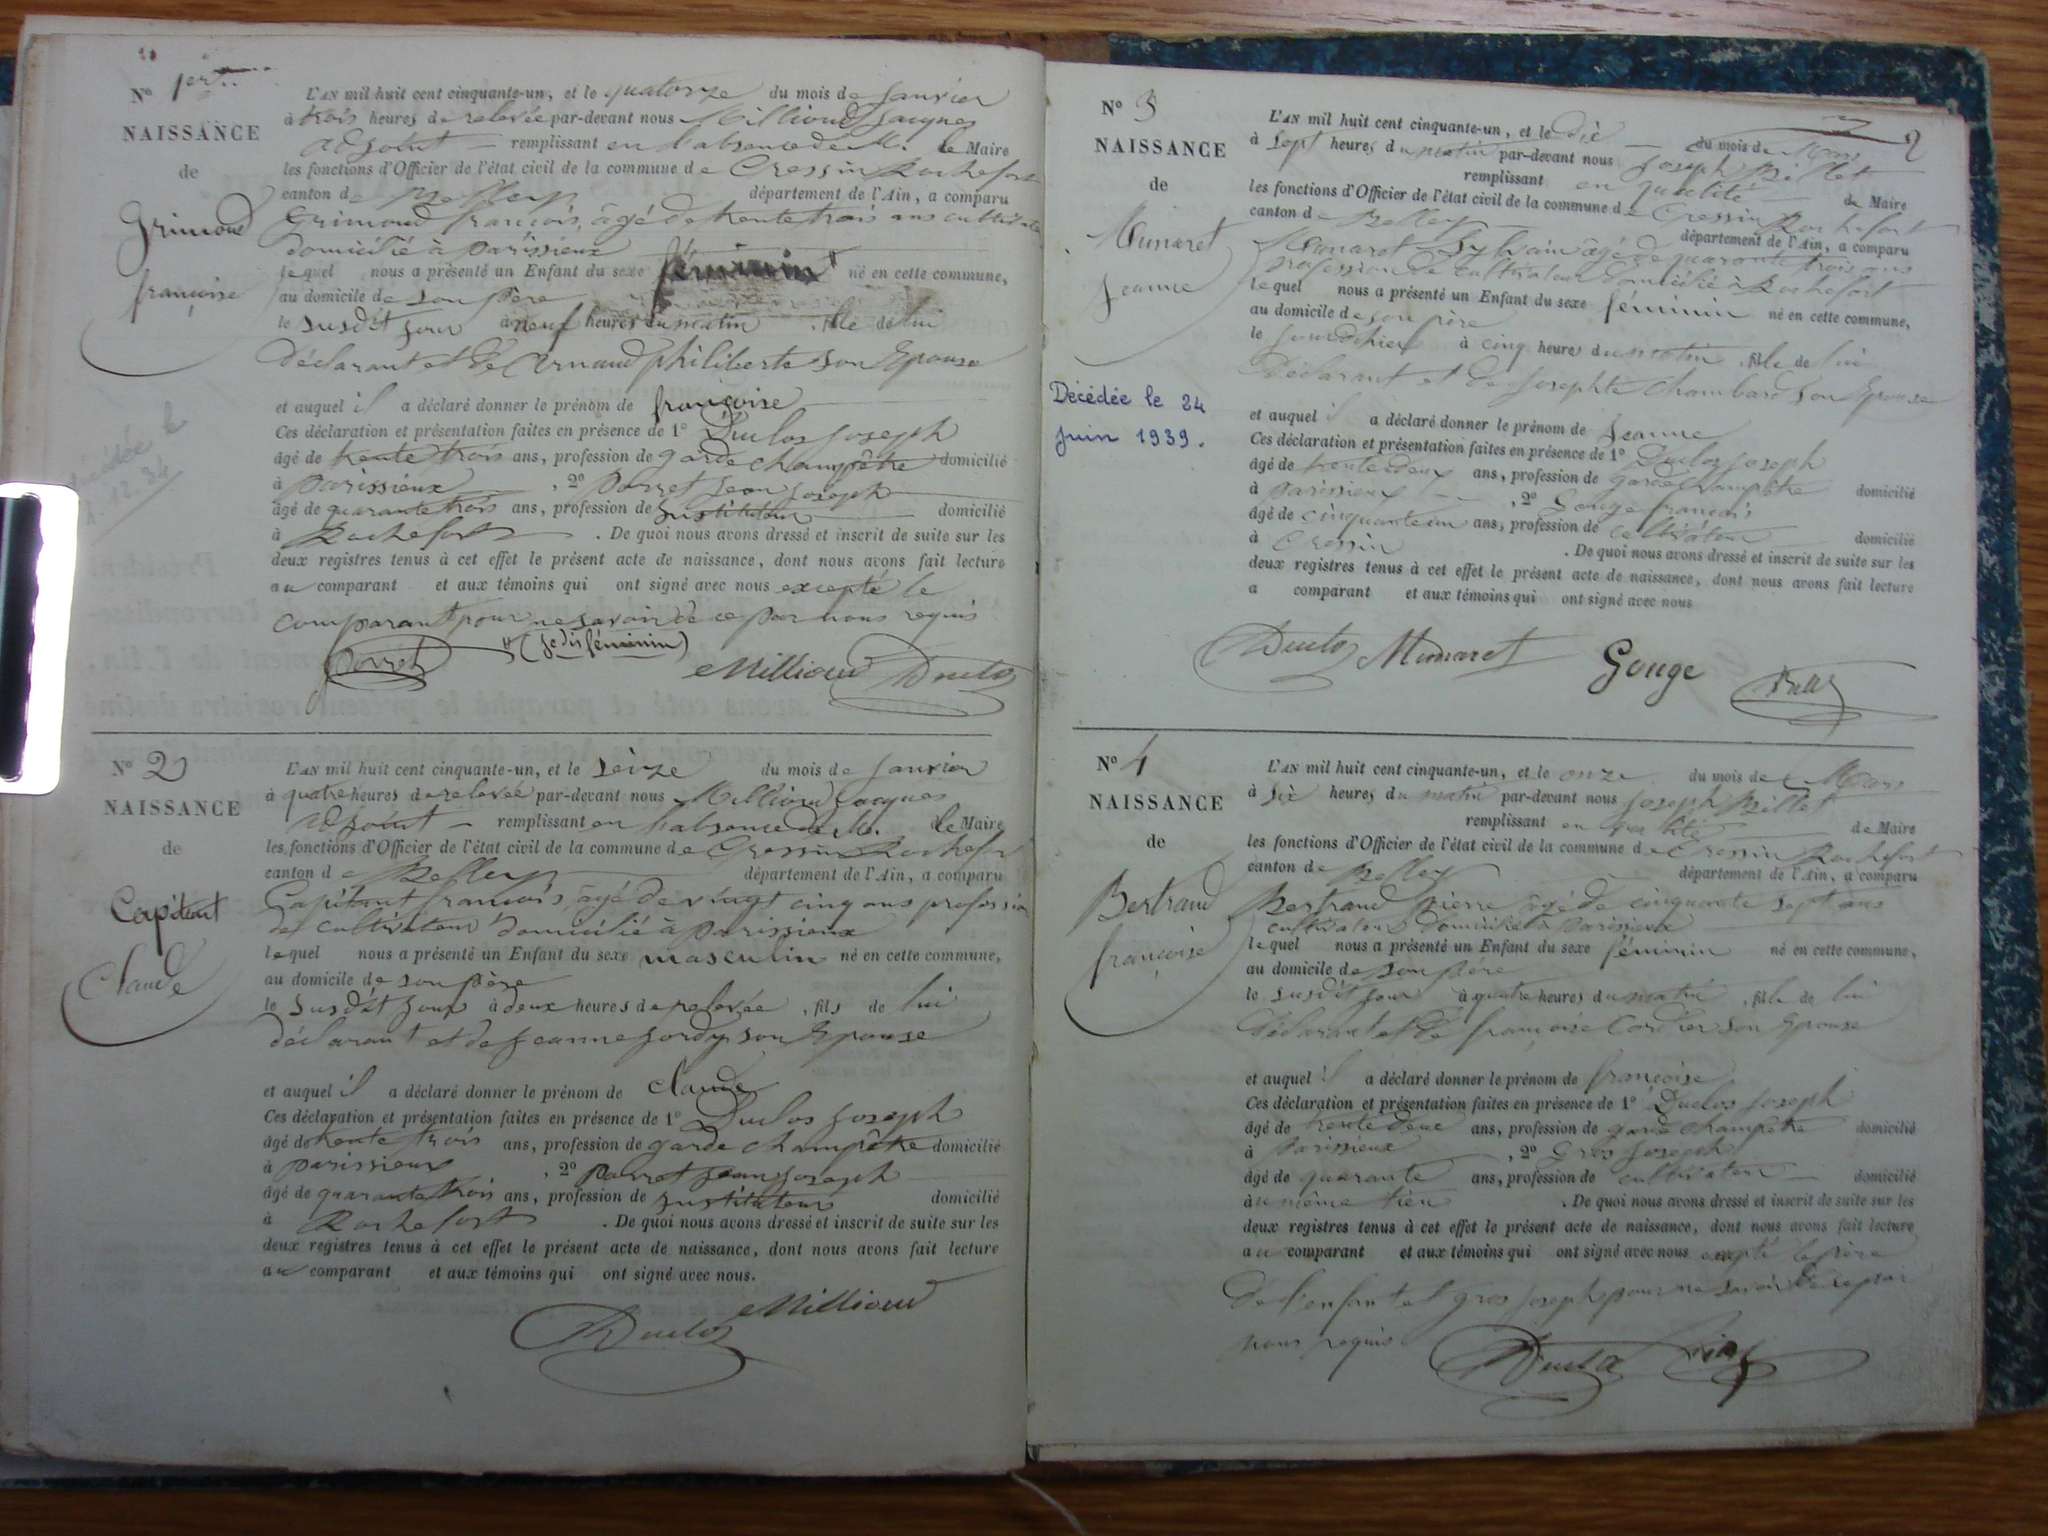 Nº 1er
NAISSANCE
de
Grimond
françoise
L'AN mil huit cent cinquante-un, et le quatorze du mois de Janvier
à trois heures de relevée par-devant nous Milliond Jacques
adjoint remplissant en l'absence de M. le Maire
les fonctions d'Officier de l'état civil de la commune de Cressin Rochefort
canton de Belley département de l'Ain, a comparu
Grimond françois, âgé de trente trois ans cultivateur
domicilié à parissieux
lequel nous a présenté un Enfant du sexe féminin né en cette commune,
au domicile de son père
le susdit jour à neuf heures du matin fille de lui
déclarant et de Arnaud philiberte son Epouse
et auquel il a déclaré donner le prénom de françoise
Ces déclaration et présentation faites en présence de 1º Duclos Joseph
âgé de trente trois ans, profession de garde champêtre domicilié
à parissieux , 2º porret Jean Joseph
âgé de quarante trois ans, profession de Instituteur domicilié
à Rochefort . De quoi nous avons dressé et inscrit de suite sur les
deux registres tenus à cet effet le présent acte de naissance, dont nous avons fait lecture
au comparant et aux témoins qui ont signé avec nous excepté le
comparant pour ne savoir de ce par nous requis
(je dis féminin)
porret Milliond Duclos
Nº 2
NAISSANCE
de
Capitant
Claude
L'AN mil huit cent cinquante-un, et le seize du mois de Janvier
à quatre heures de relevée par-devant nous Milliond Jacques
adjoint remplissant en l'absence de M. le Maire
les fonctions d'Officier de l'état civil de la commune de Cressin Rochefort
canton de Belley département de l'Ain, a comparu
Capitant françois, âgé de vingt cinq ans profession
de cultivateur domicilié à parissieux
lequel nous a présenté un Enfant du sexe masculin né en cette commune,
au domicile de son père
le susdit jour à deux heures de relevée , fils de lui
déclarant et de Jeanne Jordy son Epouse
et auquel il a déclaré donner le prénom de claude
Ces déclaration et présentation faites en présence de 1º Duclos Joseph
âgé de trente trois ans, profession de garde champêtre domicilié
à parissieux , 2º porret Jean Joseph
âgé de quarante trois ans, profession de Instituteur domicilié
à Rochefort . De quoi nous avons dressé et inscrit de suite sur les
deux registres tenus à cet effet le présent acte de naissance, dont nous avons fait lecture
au comparant et aux témoins qui ont signé avec nous.
Duclos Milliond
Nº 3
NAISSANCE
de
Munaret
Jeanne
Décédée le 24
Juin 1939.
2
L'AN mil huit cent cinquante-un, et le dix du mois de Mars
à sept heures du matin par-devant nous Joseph Billet
remplissant en qualité de Maire
les fonctions d'Officier de l'état civil de la commune de Cressin Rochefort
canton de Belley département de l'Ain, a comparu
Munaret Sylvain âgé de quarante trois ans
profession de cultivateur domicilié à Rochefort
lequel nous a présenté un Enfant du sexe féminin né en cette commune,
au domicile de son père
le jour d'hier à cinq heures du matin , fille de lui
Déclarant et de Josephte Chambard son Epouse
et auquel il a déclaré donner le prénom de Jeanne
Ces déclaration et présentation faites en présence de 1º Duclos Joseph
âgé de trente deux ans, profession de garde champêtre domicilié
à parissieux , 2º Gouge françois
âgé de cinquante un ans, profession de cultivateur domicilié
à Cressin . De quoi nous avons dressé et inscrit de suite sur les
deux registres tenus à cet effet le présent acte de naissance, dont nous avons fait lecture
a comparant et aux témoins qui ont signé avec nous
Duclos Munaret Gouge
Nº 4
NAISSANCE
de
Bertrand
françoise
L'AN mil huit cent cinquante-un, et le onze du mois de Mars
à six heures du matin par-devant nous Joseph Billet
remplissant en qualité de Maire
les fonctions d'Officier de l'état civil de la commune de Cressin Rochefort
canton de Belley département de l'Ain, a comparu
Bertrand pierre âgé de cinquante sept ans
cultivateur domicilié à parissieux
lequel nous a présenté un Enfant du sexe féminin né en cette commune,
au domicile de son père
le susdit jour à quatre heures du matin , fille de lui
Déclarant et de françoise Cordier son Epouse
et auquel il a déclaré donner le prénom de françoise
Ces déclaration et présentation faites en présence de 1º Duclos Joseph
âgé de trente deux ans, profession de garde champêtre domicilié
à parissieux , 2º Gros Joseph
âgé de quarante ans, profession de cultivateur domicilié
au même lieu . De quoi nous avons dressé et inscrit de suite sur les
deux registres tenus à cet effet le présent acte de naissance, dont nous avons fait lecture
au comparant et aux témoins qui ont signé avec nous excepté le père
de l'enfant et gros Joseph pour ne savoir de ce par
nous requis
Duclos